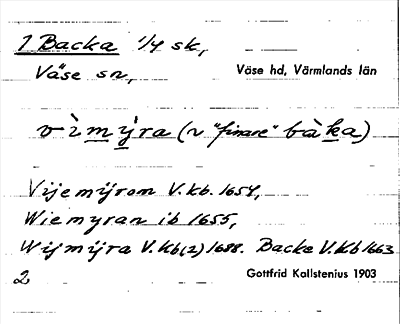 1 Backa 1/4 sk,
Väse sn, Väse hd, Värmlands län
vìmy̆ra (v "finare" bàka)
Vijemÿrom V.kb. 1654,
Wiemyran ib 1655,
Wijmÿra V.Kb(2) 1688. Backe V.Kb 1663
2 Gottfrid Kallstenius 1903